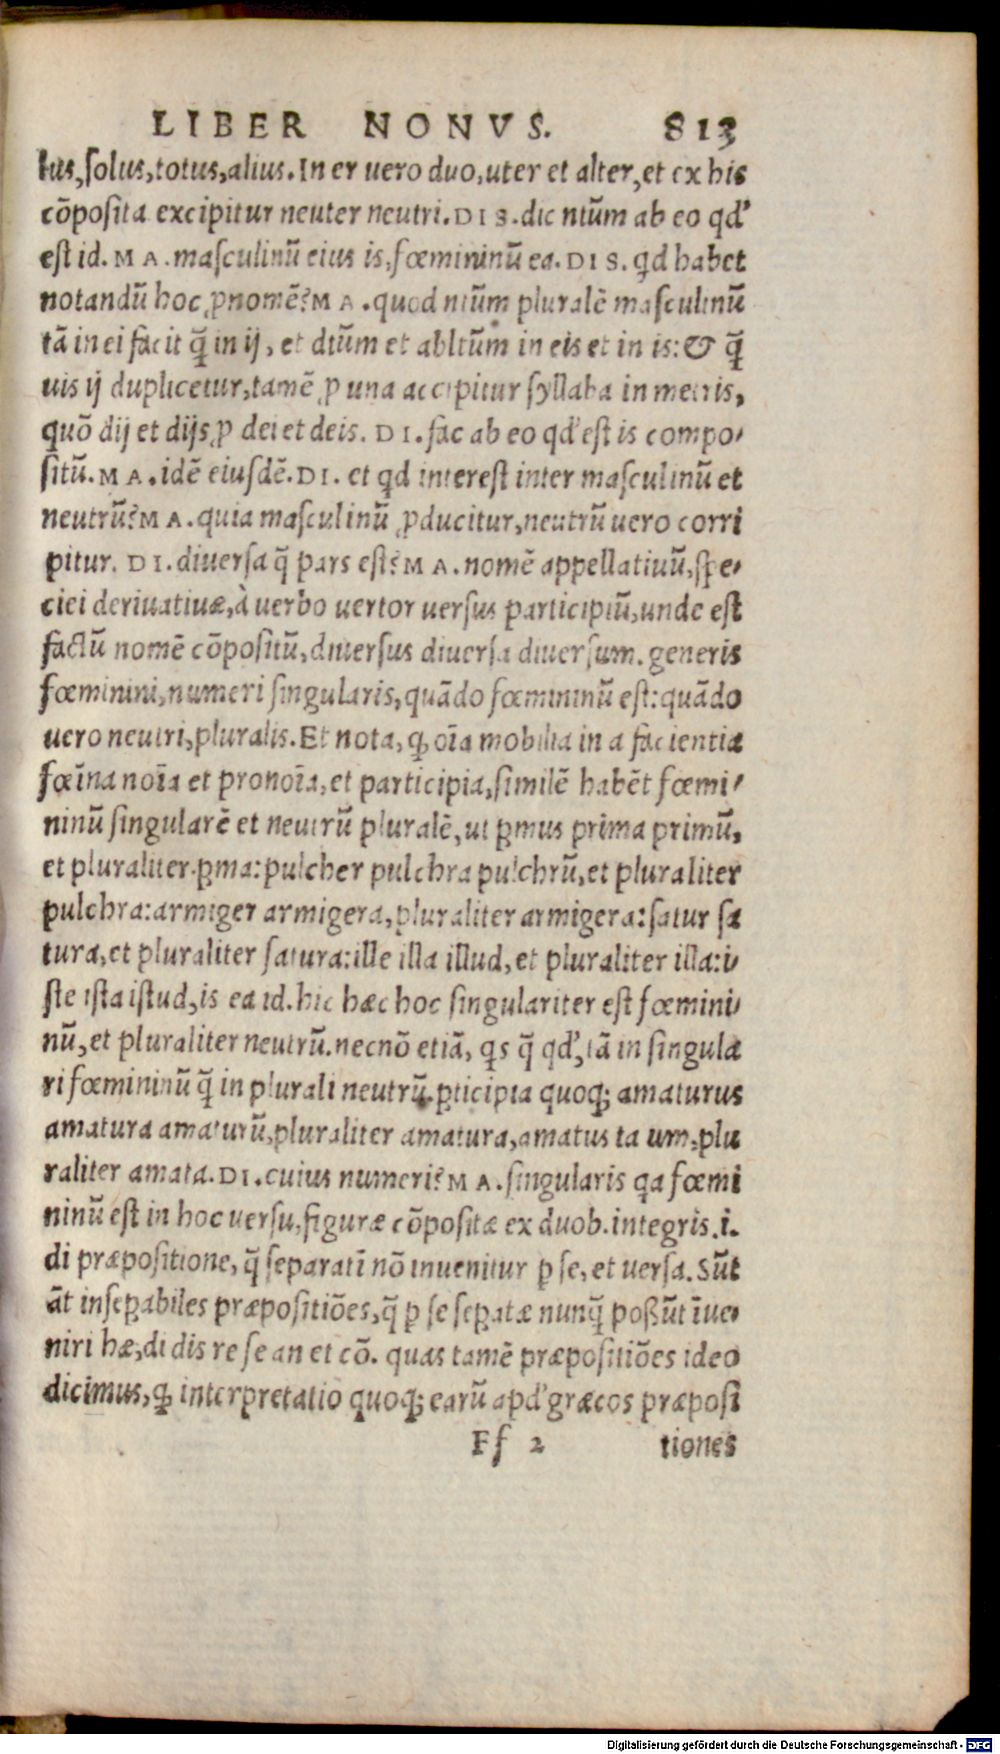 LIBER NONVS. 813
lus, solus, totus, alius. In er uero duo, uter et alter, et ex his
cõposita excipitur neuter neutri. DIS. dic ntũm ab eo qď
est id. MA. masculinũ eius is, fœmininũ ea. DIS. qd habet
notandũ hoc ꝓnomẽ? MA. quod ntũm pluralẽ masculinũ
tã in ei facit q̃ in ij, et dtũm et abltũm in eis et in is: & q̃
uis ij duplicetur, tamẽ ꝓ una accipitur syllaba in metris,
quõ dij et dijs ꝓ dei et deis. DI. fac ab eo qď est is compo-
sitũ. MA. idẽ eiusdẽ. DI. et qd interest inter masculinũ et
neutrũ? MA. quia masculinũ ꝓducitur, neutrũ uero corri
pitur. DI. diuersa q̃ pars est? MA. nomẽ appellatiuũ, spe-
ciei deriuatiuæ, à uerbo uertor uersus participiũ, unde est
factũ nomẽ cõpositũ, diuersus diuersa diuersum. generis
fœminini, numeri singularis, quãdo fœmininũ est: quãdo
uero neutri, pluralis. Et nota, ꝙ oĩa mobilia in a facientia
fœĩna noĩa et pronoĩa, et participia, similẽ habẽt fœmi-
ninũ singularẽ et neutrũ pluralẽ, ut pmus prima primũ,
et pluraliter pma: pulcher pulchra pulchrũ, et pluraliter
pulchra: armiger armigera, pluraliter armigera: satur sa
tura, et pluraliter satura: ille illa illud, et pluraliter illa: i-
ste ista istud, is ea id. hic hæc hoc singulariter est fœmini-
nũ, et pluraliter neutrũ. necnõ etiã, qs q̃ qď, tã in singula
ri fœmininũ q̃ in plurali neutrũ. ꝑticipia quoq; amaturus
amatura amaturũ, pluraliter amatura, amatus ta um, plu
raliter amata. DI. cuius numeri? MA. singularis qa fœmi
ninũ est in hoc uersu, figuræ cõpositæ ex duob. integris. i.
di præpositione, q̃ separatĩ nõ inuenitur ꝑ se, et uersa. Sũt
ãt insepabiles præpositiões, q̃ ꝑ se sepatæ nunq̃ poßũt ĩue-
niri hæ, di dis re se an et cõ. quas tamẽ præpositiões ideo
dicimus, ꝙ interpretatio quoq; earũ apď græcos præposi
Ff 2 tiones
Digitalisierung gefördert durch die Deutsche Forschungsgemeinschaft - DFG